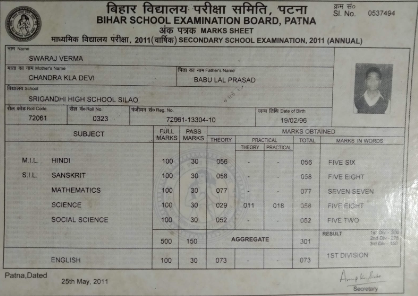 बिहार विद्यालय परीक्षा समिति, पटना
क्रम सं०
BIHAR SCHOOL EXAMINATION BOARD, PATNA
Sl. No. 0537494
अंक पत्रक MARKS SHEET
माध्यमिक विद्यालय परीक्षा, 2011 (वार्षिक) SECONDARY SCHOOL EXAMINATION, 2011 (ANNUAL)
नाम Name
SWARAJ VERMA
माता का नाम Mother's Name
पिता का नाम Father's Name
CHANDRA KLA DEVI
BABU LAL PRASAD
विद्यालय School
SRIGANDHI HIGH SCHOOL SILAO
Roll Code
Roll No.
Reg. No.
जन्म तिथि Date of Birth
72061
0323
72961-13304-10
19/02/96
SUBJECT
FULL MARKS
PASS MARKS
MARKS OBTAINED
THEORY
PRACTICAL
TOTAL
MARKS IN WORDS
THEORY
PRACTICAL
M.I.L. HINDI 100 30 056 056 FIVE SIX
S.I.L. SANSKRIT 100 30 058 058 FIVE EIGHT
MATHEMATICS 100 30 077 077 SEVEN SEVEN
SCIENCE 100 30 029 011 018 058 FIVE EIGHT
SOCIAL SCIENCE 100 30 052 052 FIVE TWO
500 150 AGGREGATE 301 RESULT
ENGLISH 100 30 073 073 1ST DIVISION
Patna,Dated
25th May, 2011
Secretary